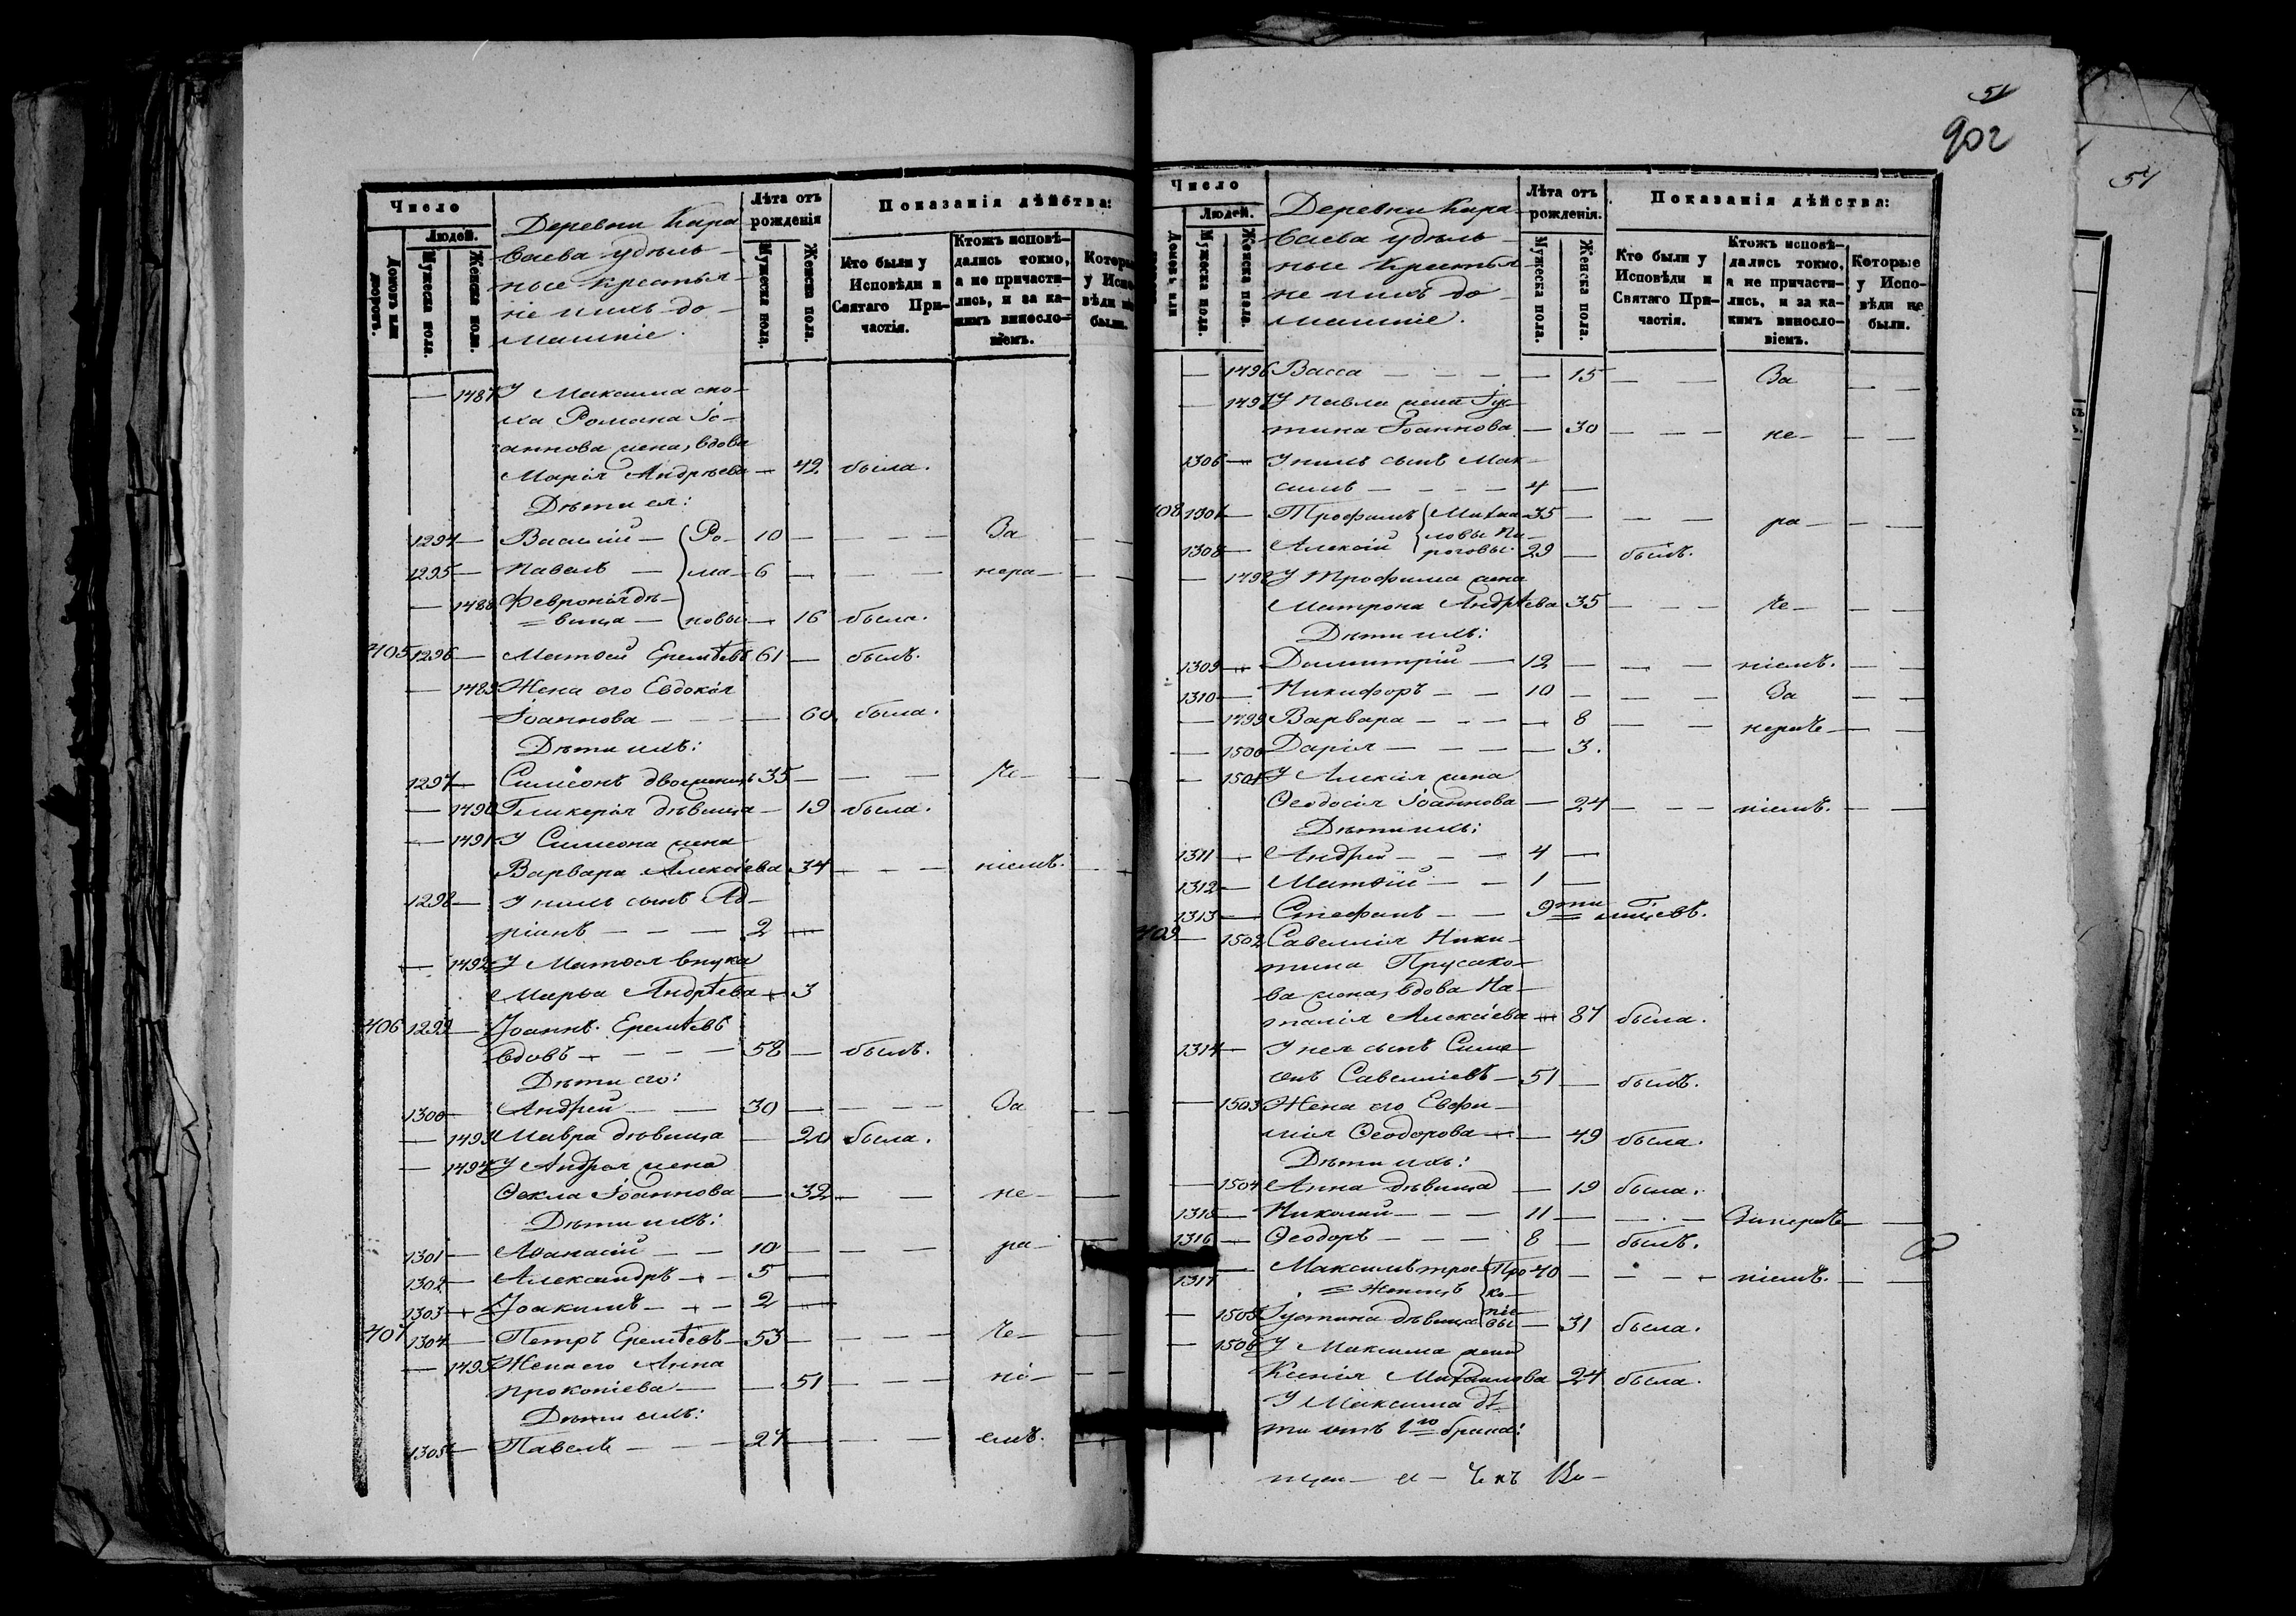 51
902
54
Число
Людей.
Домовъ или дворовъ.
Мужеска пола.
Женска пола.
Деревни Кара
ваева удѣль-
ные крестья-
не и ихъ до-
машніе.
Лѣта отъ рожденія
Мужеска пола.
Женска пола.
Показанія дѣйства:
Кто были у Исповѣди и Святаго При-частія.
Ктожъ исповѣ-дались токмо, а не причасти-лись, и за ка-кимъ винословіемъ.
Которые у Испо-вѣди не были.
— 1487 У Максима сно-
ха Романа Іо-
аннова жена, вдова
Марія Андрѣева — 42 была.
Дѣти ея:
1294 — Василій — Ро- 10 — — — За — —
1295 — Павелъ — ма- 6 — — — нера- — —
— 1488 Февронія дѣ-
вица — новы — 16 была.
405 1296 — Матѳей Еремѣевъ 61 — былъ.
— 1489 Жена его Евдокія
Іоаннова — — — 60 была.
Дѣти ихъ:
1297 — Симеонъ двоеженецъ 35 — — — че- —
— 1490 Гликерія дѣвица — 19 была.
— 1491 У Симеона жена
Варвара Алексіева 34 — — — ніемъ. —
1298 — У нихъ сынъ Ад-
ріанъ — — — 2 —
— 1492 У Матѳея внука
Марѳа Андрѣева — 3
406 1299 — Іоаннъ Еремѣевъ
вдовъ — — — 58 — былъ.
Дѣти его:
1300 — Андрей — — 30 — — — За — —
— 1493 Мавра дѣвица — 20 была.
— 1494 У Андрея жена
Ѳекла Іоаннова — 32 — — не- —
Дѣти ихъ:
1301 — Аѳанасій — — 10 — — — ра- —
1302 — Александръ — — 5 —
1303 — Іоакимъ — — — 2 —
407 1304 — Петръ Еремѣевъ — 53 — — — че- —
— 1495 Жена его Анна
Прокопіева — — 51 — — — ні- — —
Дѣти ихъ:
1305 — Павелъ — — — 27 — — — емъ. —
Число
Людей.
Домовъ или
Мужеска пола.
Женска пола.
Деревни Кара-
ваева удѣль-
ные крестья-
не и ихъ до-
машніе.
Лѣта отъ рожденія.
Мужеска пола.
Женска пола.
Показанія дѣйства:
Кто были у Исповѣди и Святаго При-частія.
Ктожъ исповѣ-дались токмо, а не причасти-лись, и за ка-кимъ винословіемъ.
Которые у Испо-вѣди не были.
— 1496 Васса — — — — 15 — — За — —
— 1497 У Павла жена Іус-
тина Іоаннова — 30 — — — не- — —
1306 — У нихъ сынъ Мак-
симъ — — — — 4 —
408 1307 — Трофимъ Михаи- 35 — — — ра- — —
1308 — Алексій ловы Пи-роговы 29 — былъ.
— 1498 У Трофима жена
Матрона Андрѣева 35 — — — че- — —
Дѣти ихъ:
1309 — Димитрій — 12 — — — ніемъ. — —
1310 — Никифоръ — — 10 — — — За — —
— 1499 Варвара — — — — 8 — — нераче- — —
— 1500 Дарія — — — — 3.
— 1501 У Алексія жена
Ѳеодосія Іоаннова — 24 — — — ніемъ. — —
Дѣти ихъ:
1311 — Андрей — — — 4 —
1312 — Матѳій — — 1 —
1313 — Стефанъ — — 9ти мѣсяцевъ.
409 — 1502 Савеллія Ники-
тина Прусако-
ва жена, вдова На-
талія Алексіева — 87 была.
1314 — У нея сынъ Симе-
онъ Савелліевъ — 51 — былъ.
— 1503 Жена его Евфи-
мія Ѳеодорова — — 49 была.
Дѣти ихъ:
— 1504 Анна дѣвица — 19 была.
1315 — Николай — — — 11 — — — Занераче- —
1316 — Ѳеодоръ — — — 8 — былъ.
1317 — Максимъ трое-женецъ Про- 40 — — — ніемъ. — —
— 1505 Іустина дѣвица ко-піе-вы — 31 была.
— 1506 У Максима жена
Ксенія Михаилова 24 была.
У Максима дѣ-
ти отъ 1го брака: